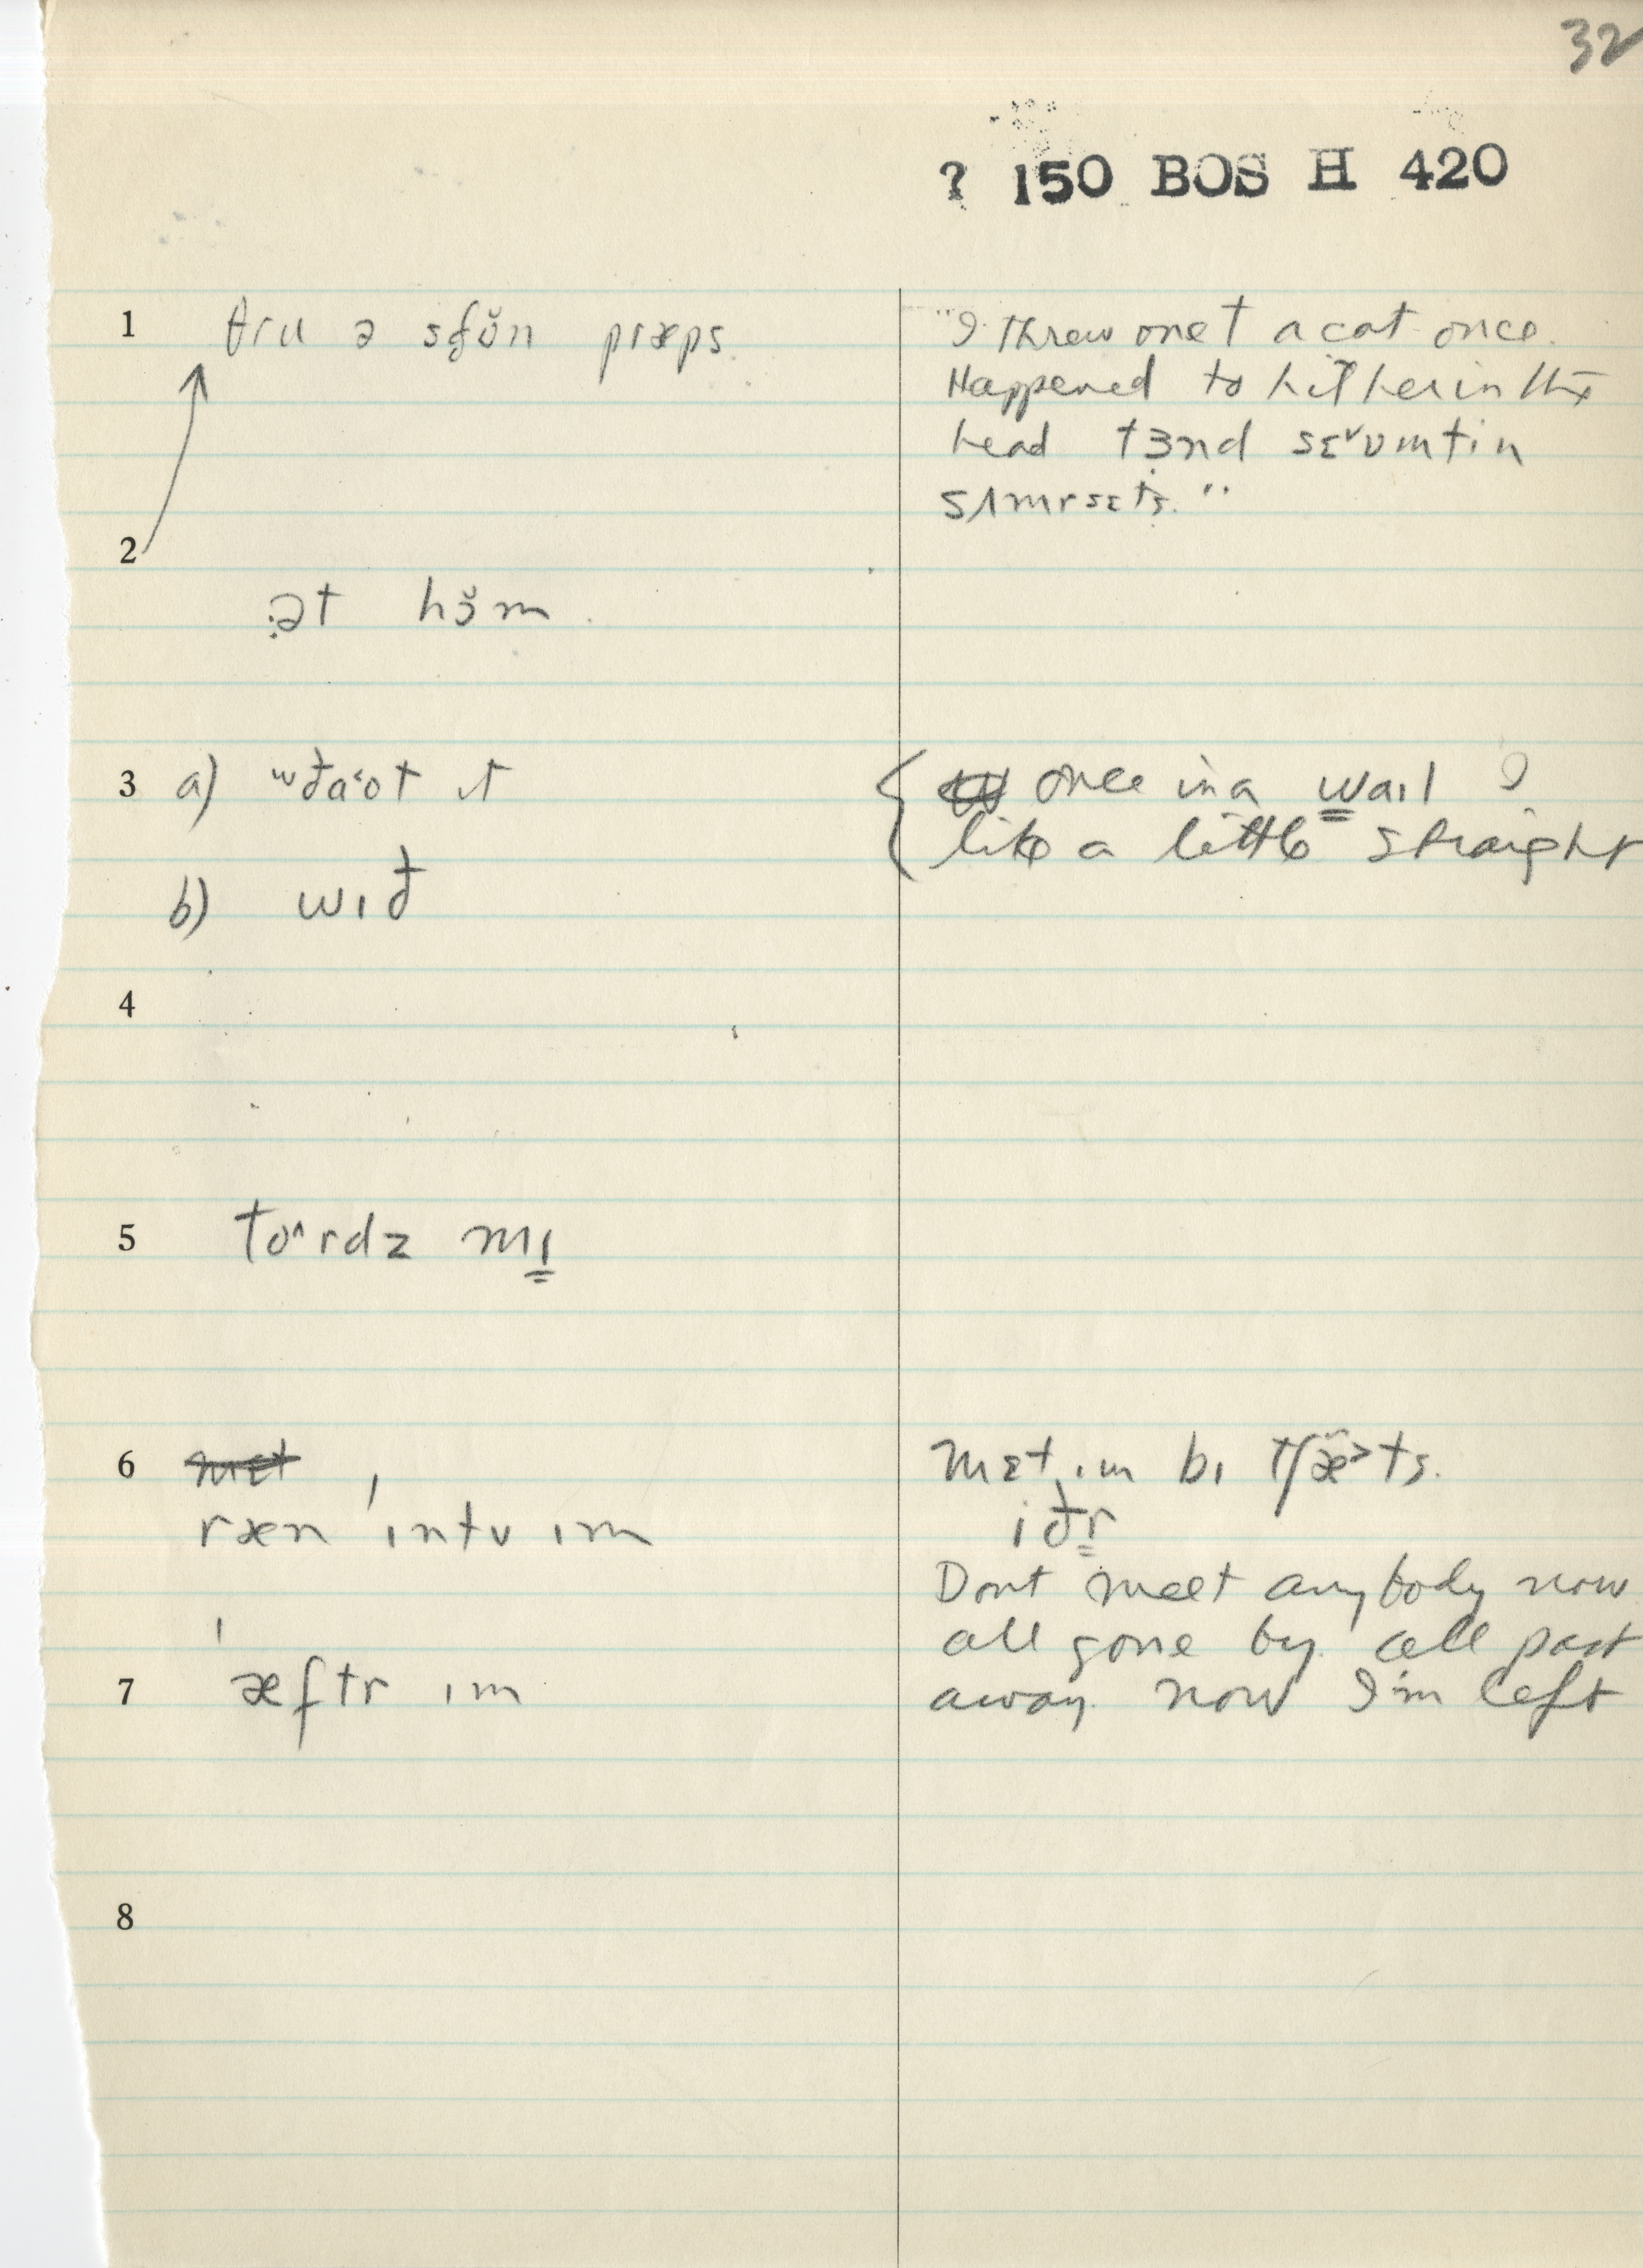 32
? 150 BOS H 420
1 θru ə stŏn præps
"I threw one t a cat once.
Happened to hit her in the
head tɜnd sɛ˅ʋmtin
sʌmrsɛts."
2
ət hɔ̆m
3 a) wðaʊt ɪt
once in a waɪl I
like a little straight
b) wɪð
4
5 tɒ^rdz mɪ
6 mɛt
mɛt ɪm bɪ tʃæ˃ts.
ræn ɪntʊ ɪm
iðr
Dont meet anybody now
all gone by all past
7 æftr ɪm
away now I'm left
8